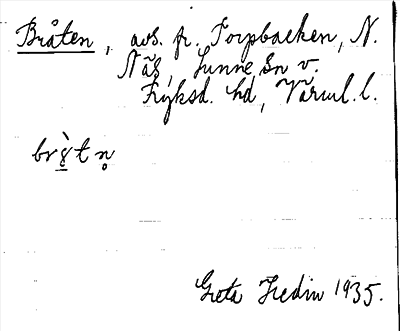 Bråten, avs. fr. Torpbacken, N.
Näs, Sunne sn v.
Fryksd. hd, Värml. l.
br
Greta Hedin 1935.